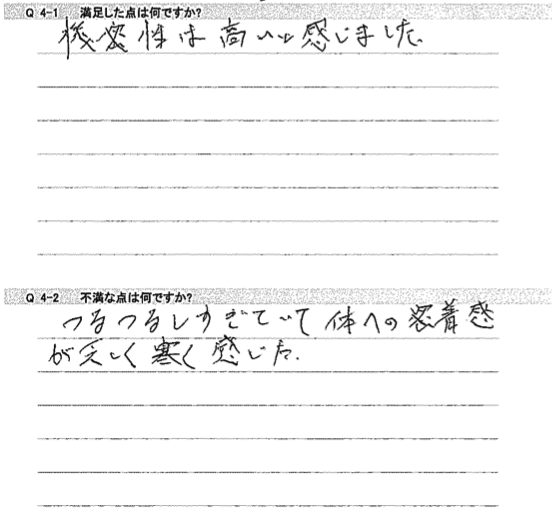 Q 4-1 満足した点は何ですか?
機密性は高いと感じました。
Q 4-2 不満な点は何ですか?
つるつるしすぎていて体への密着感
が乏しく寒く感じた.